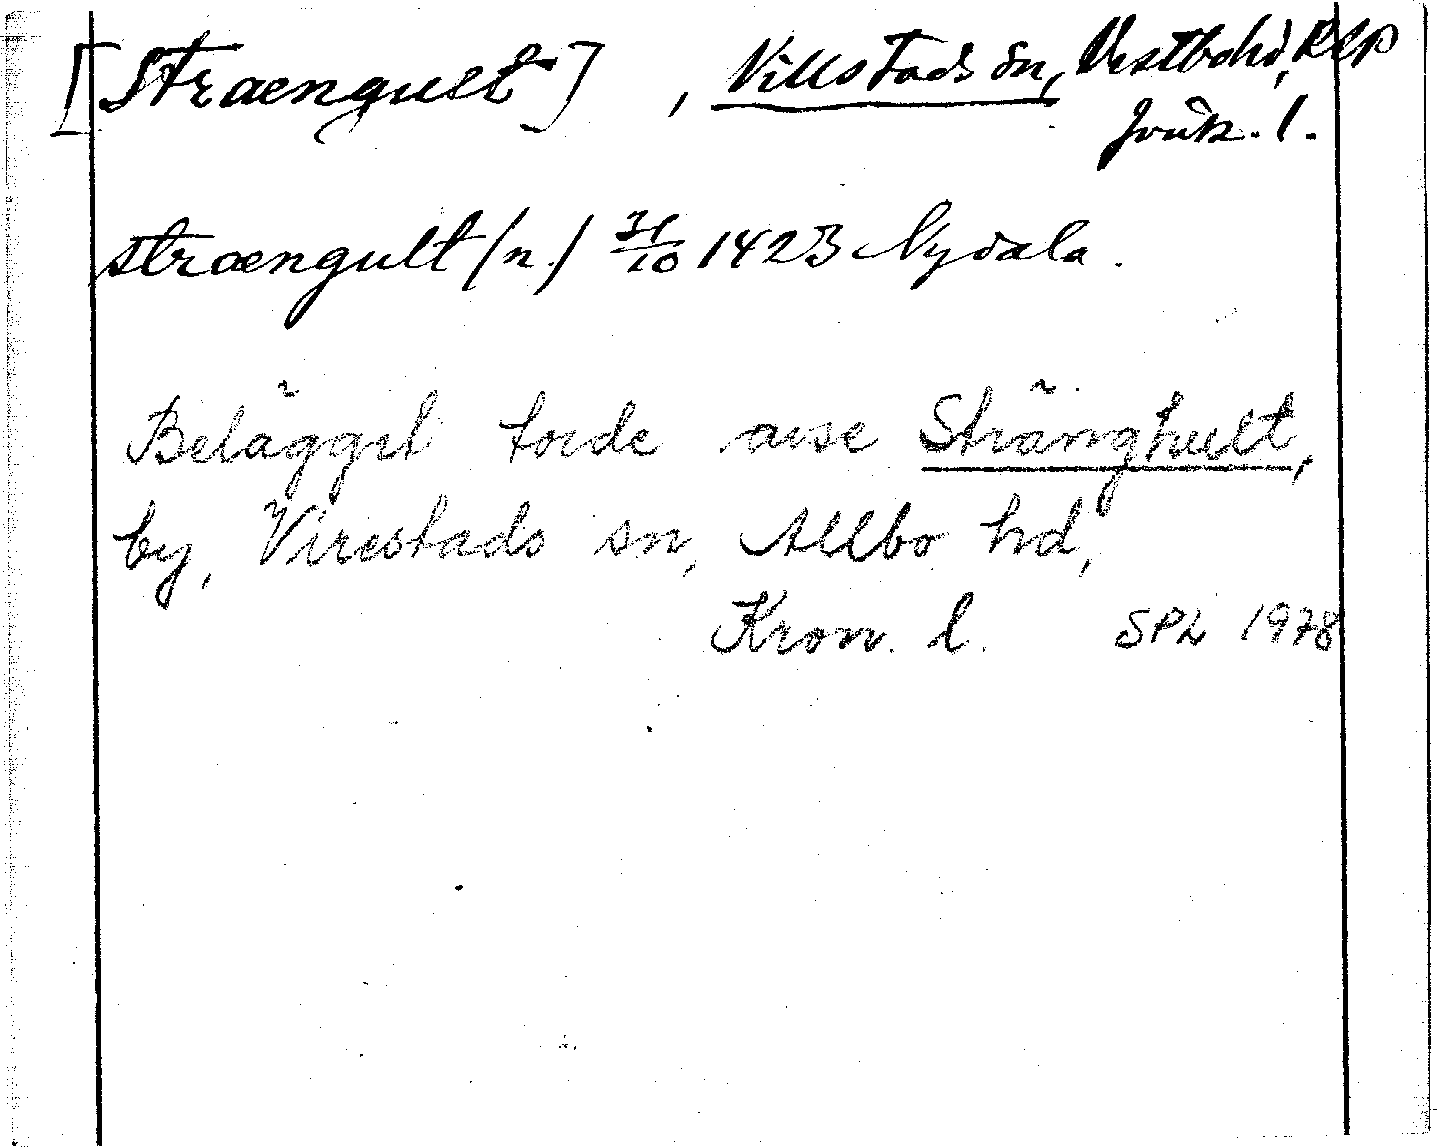 [Strængult], Villstads sn, Västbo hd, RAP
Jönk. l.
strængult (n.) 31/10 1423 Nydala.
Belägget torde avse Stränghult,
by, Virestads sn, Allbo hd,
Kron. l. SPL 1978